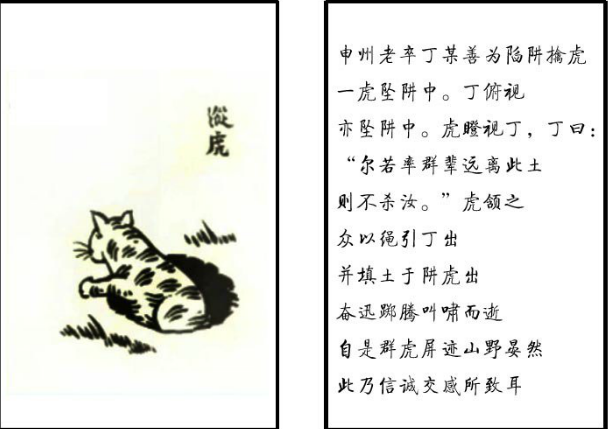 纵虎
申州老卒丁某善为陷阱擒虎
一虎坠阱中。丁俯视
亦坠阱中。虎瞪视丁，丁曰：
“尔若率群辈远离此土
则不杀汝。”虎颔之
众以绳引丁出
并填土于阱虎出
奋迅踯腾叫啸而逝
自是群虎屏迹山野晏然
此乃信诚交感所致耳